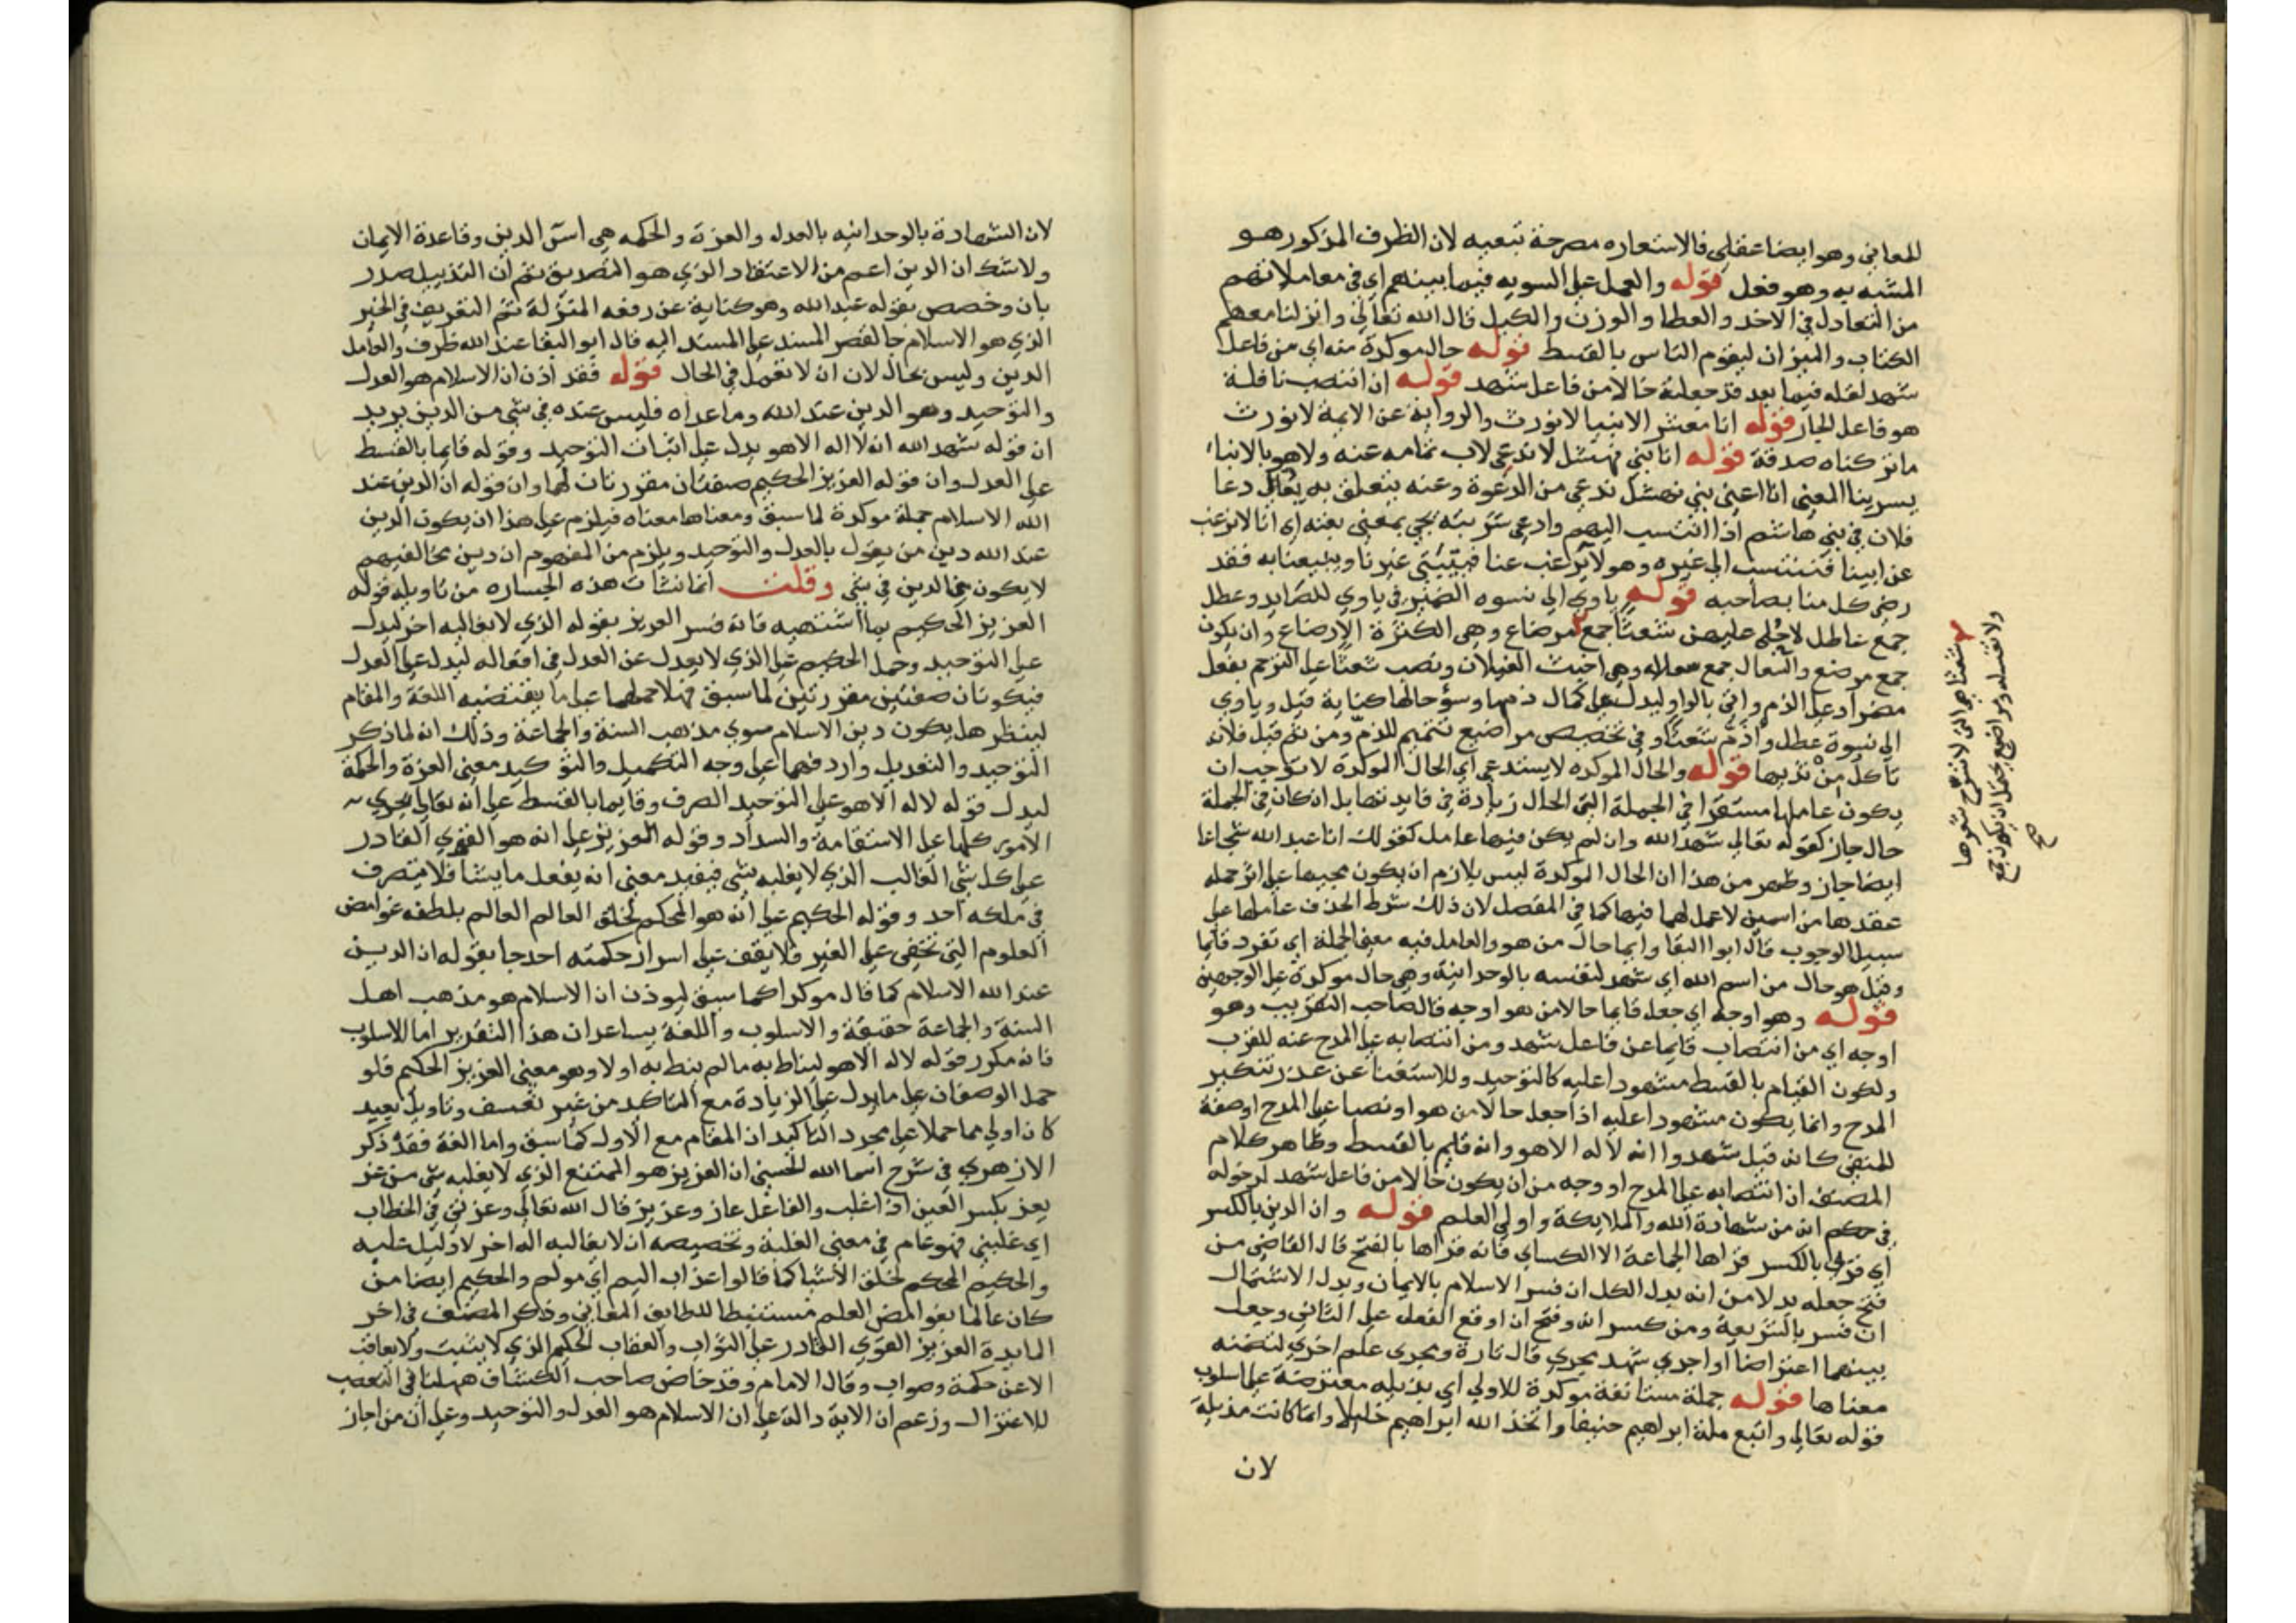 للمعاني وهو ايضا عقلي فالاستعاره مصرحة تبعيه لان الظرف المذكور هو
المشبه به وهو فعل قوله والعمل علي السويه فيما بينهم اي في معاملاتهم
من التعادل في الاخذ والعطا والوزن والكيل قال الله تعالي وانزلنا معهم
الكتاب والميزان ليقوم الناس بالقسط قوله حال موكدة منه اي من فاعل
شهد لقوله فيما بعد قد جعلته حالا من فاعل شهد قوله ان انتصب نافلة
هو فاعل لجاز قوله انا معشر الانبيا لا نورث والرواية عن الايمة لا نورث
ما تركناه صدقة قوله انا بني نهشل لا ندعي لاب تمامه عنه ولا هو بالابنا
يسرينا المعني انا اعني بني نهشل ندعي من الدعوة وعنه يتعلق به يقال دعا
فلان في بني هاشم اذا انتسب اليهم وادعي عنه اي انا لا نرغب
عن ابينا فننتسب الي غيره وهو لا يرغب عنا فيتبني غيرنا ويبيعنا به فقد
رضي كل منا بصاحبه قوله ياوي الي نسوه الضمير في ياوي للصايد وعطل
جمع عاطل لا حلي عليهن شعثا جمع مرضاع وهي الكثرة الارضاع وان يكون
جمع مرضع والسعال جمع سعلاه وهي اخبث الغيلان ونصب شعثا علي الترحم بفعل
مضمر او علي الذم واتي بالواو ليدل علي كمال ذمها وسؤ حالها كناية قيل وياوي
الي نسوة عطل واذم شعثا وفي تخصيص مراضيع تتميم للذم ومن ثم قيل فلانه
تاكل من ثديها قوله والحال الموكده لا يستدعي اي الحال الموكدة لا توجب ان
يكون عاملها مستقرا في الجملة التي الحال زيادة في فايدتها بل ان كان في الجملة
حال جاز كقوله تعالي شهد الله وان لم يكن فيها عامل كقولك انا عبد الله شجاعا
ايضا جاز وظهر من هذا ان الحال الموكدة ليس بلازم ان يكون مجيها علي اثر جمله
عقدها من اسمين لا عمل لهما فيها كما في المفصل لان ذلك شرط الحذف عاملها علي
سبيل الوجوب قال ابوا البقا وايما حال من هو والعامل فيه معني الجملة اي تفرد قايما
وقيل هو حال من اسم الله اي شهد لنفسه بالوحدانية وهي حال موكدة علي الوجهين
قوله وهو اوجه اي جعل قايما حالا من هو اوجه قال صاحب التقريب وهو
اوجه اي من انتصاب قايما عن فاعل شهد ومن انتصابه علي المدح عنه للقرب
ولكون القيام بالقسط مشهودا عليه كالتوحيد وللاستغنا عن عذر تنكير
المدح وانما يكون مشهودا عليه اذا جعل حالا من هو او نصبا علي المدح او صفة
للمنفي كانه قيل شهدوا انه لا اله الا هو وانه قايم بالقسط وظاهر كلام
المصنف ان انتصابه علي المدح او وجه من ان يكون حالا من فاعل شهد لدخوله
في حكم انه من شهادة الله والملايكة واولي العلم قوله وان الدين بالكسر
اي قري بالكسر قراها الجماعة الا الكساي فانه قراها بالفتح قال القاضي من
فتح جعله بدلا من انه بدل الكل ان فسر الاسلام بالايمان وبدل الاشتمال
ان فسر بالشريعة ومن كسر انه وفتح ان اوقع الفعل علي الثاني وجعل
بينهما اعتراضا او اجري شهد مجري قال تارة ومجري علم اخري لتضمنه
معناها قوله جملة مستانفة موكدة للاولي اي تذييله معترضة علي اسلوب
قوله تعالي واتبع ملة ابراهيم حنيفا واتخذ الله ابراهيم خليلا وانما كانت مذيلة
لان
شعثا هي التي لا تسرح شعورها
ولا تغسله ومراضيع يحتمل ان يكون جمع
صح
لان الشهادة بالوحدانيه بالعدل والعزة والحكمه هي اس الدين وقاعدة الايمان
ولا شك ان الدين اعم من الاعتقاد الذي هو التصديق ثم ان التذييل صدر
بان وخصص بقوله عند الله وهو كناية عن رفعه المنزلة ثم التعريف في الخبر
الذي هو الاسلام جا لقصر المسند علي المسند اليه قال ابو البقا عند الله ظرف والعامل
الدين وليس بحال لان ان لا تعمل في الحال قوله فقد اذن ان الاسلام هو العدل
والتوحيد وهو الدين عند الله وما عداه فليس عنده في شي من الدين يريد
ان قوله شهد الله انه لا اله الا هو يدل علي اثبات التوحيد وقوله قايما بالقسط
علي العدل وان قوله العزيز الحكيم صفتان مقررتان لهما وان قوله ان الدين عند
الله الاسلام جملة موكدة لما سبق ومعناها معناه فيلزم علي هذا ان يكون الدين
عند الله دين من يقول بالعدل والتوحيد ويلزم من المفهوم ان دين مخالفيهم
لا يكون من الدين في شي وقلت انما نشات هذه الجساره من تاويله قوله
العزيز الحكيم بما اشتهيه فانه فسر العزيز بقوله الذي لا يغالبه اخر ليدل
علي التوحيد وحمل الحكيم علي الذي لا يعدل عن العدل في افعاله ليدل علي العدل
فيكونان صفتين مقررتين لما سبق فهلا حملهما علي ما يقتضيه اللغة والمقام
لينظر هل يكون دين الاسلام سوي مذهب السنة والجماعة وذلك انه لما ذكر
التوحيد والتعديل وارد فهما علي وجه التكميل والتوكيد معني العزة والحكمة
ليدل قوله لا اله الا هو علي التوحيد الصرف وقايما بالقسط علي انه تعالي يجري
الامور كلها علي الاستقامة والسداد وقوله العزيز علي انه هو القوي القادر
علي كل شي الغالب الذي لا يغلبه شي فيفيد معني انه يفعل ما يشا فلا يتصرف
في ملكه احد وقوله الحكيم علي انه هو المحكم لخلق العالم العالم بلطفه غوامض
العلوم التي تخفي علي الغير فلا يقف علي اسرار حكمته احد جا بقوله ان الدين
عند الله الاسلام كما قال موكدا كما سبق ليوذن ان الاسلام هو مذهب اهل
السنة والجماعة حقيقة والاسلوب واللغة يساعدان هذا التقدير اما الاسلوب
فانه مكرر قوله لا اله الا هو ليناط به ما لم ينط به اولا وهو معني العزيز الحكيم فلو
حمل الوصفان علي ما يدل علي الزيادة مع التاكيد من غير تعسف وتاويل بعيد
كان اولي مما حملا علي مجرد التاكيد ان المقام مع الاول كما سبق واما اللغة فقد ذكر
الازهري في شرح اسما الله الحسني ان العزيز هو الممتنع الذي لا يغلبه شي من عز
يعز بكسر العين اذا غلب والفاعل عاز وعزيز قال الله تعالي وعزني في الخطاب
اي غلبني فهو عام في معني الغلبة وتخصيصه ان لا يغالبه اله اخر لا دليل عليه
والحكيم المحكم لخلق الاشيا كما قالوا عذاب اليم اي مولم والحكيم ايضا من
كان عالما بغوامض العلم مستنبطا للطايف المعاني وذكر المصنف في اخر
المايدة العزيز القوي القادر علي الثواب والعقاب الحكيم الذي لا يثيب ولا يعاقب
الا عن حكمة وصواب وقال الامام وقد خاض صاحب الكشاف ههنا في التعصب
للاعتزال وزعم ان الاية دالة علي ان الاسلام هو العدل والتوحيد وعلي ان من اجاز